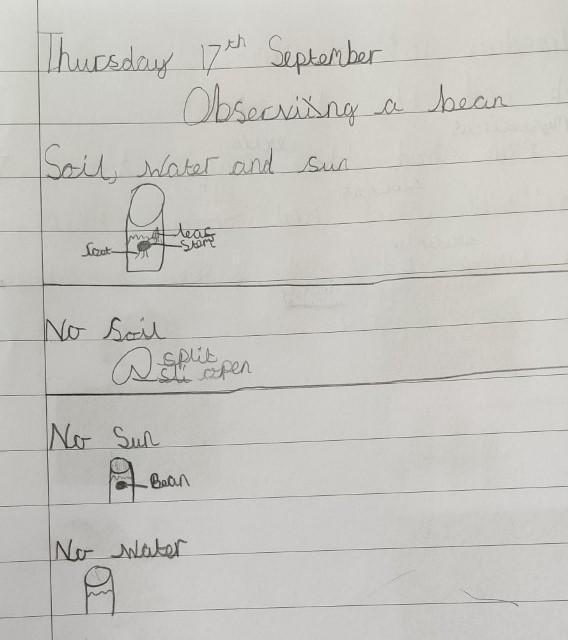 Thursday 17th September
Observiing a bean
Soil, water and sun
leaf
root stem
No Soil
split
open
No Sun
Bean
No water